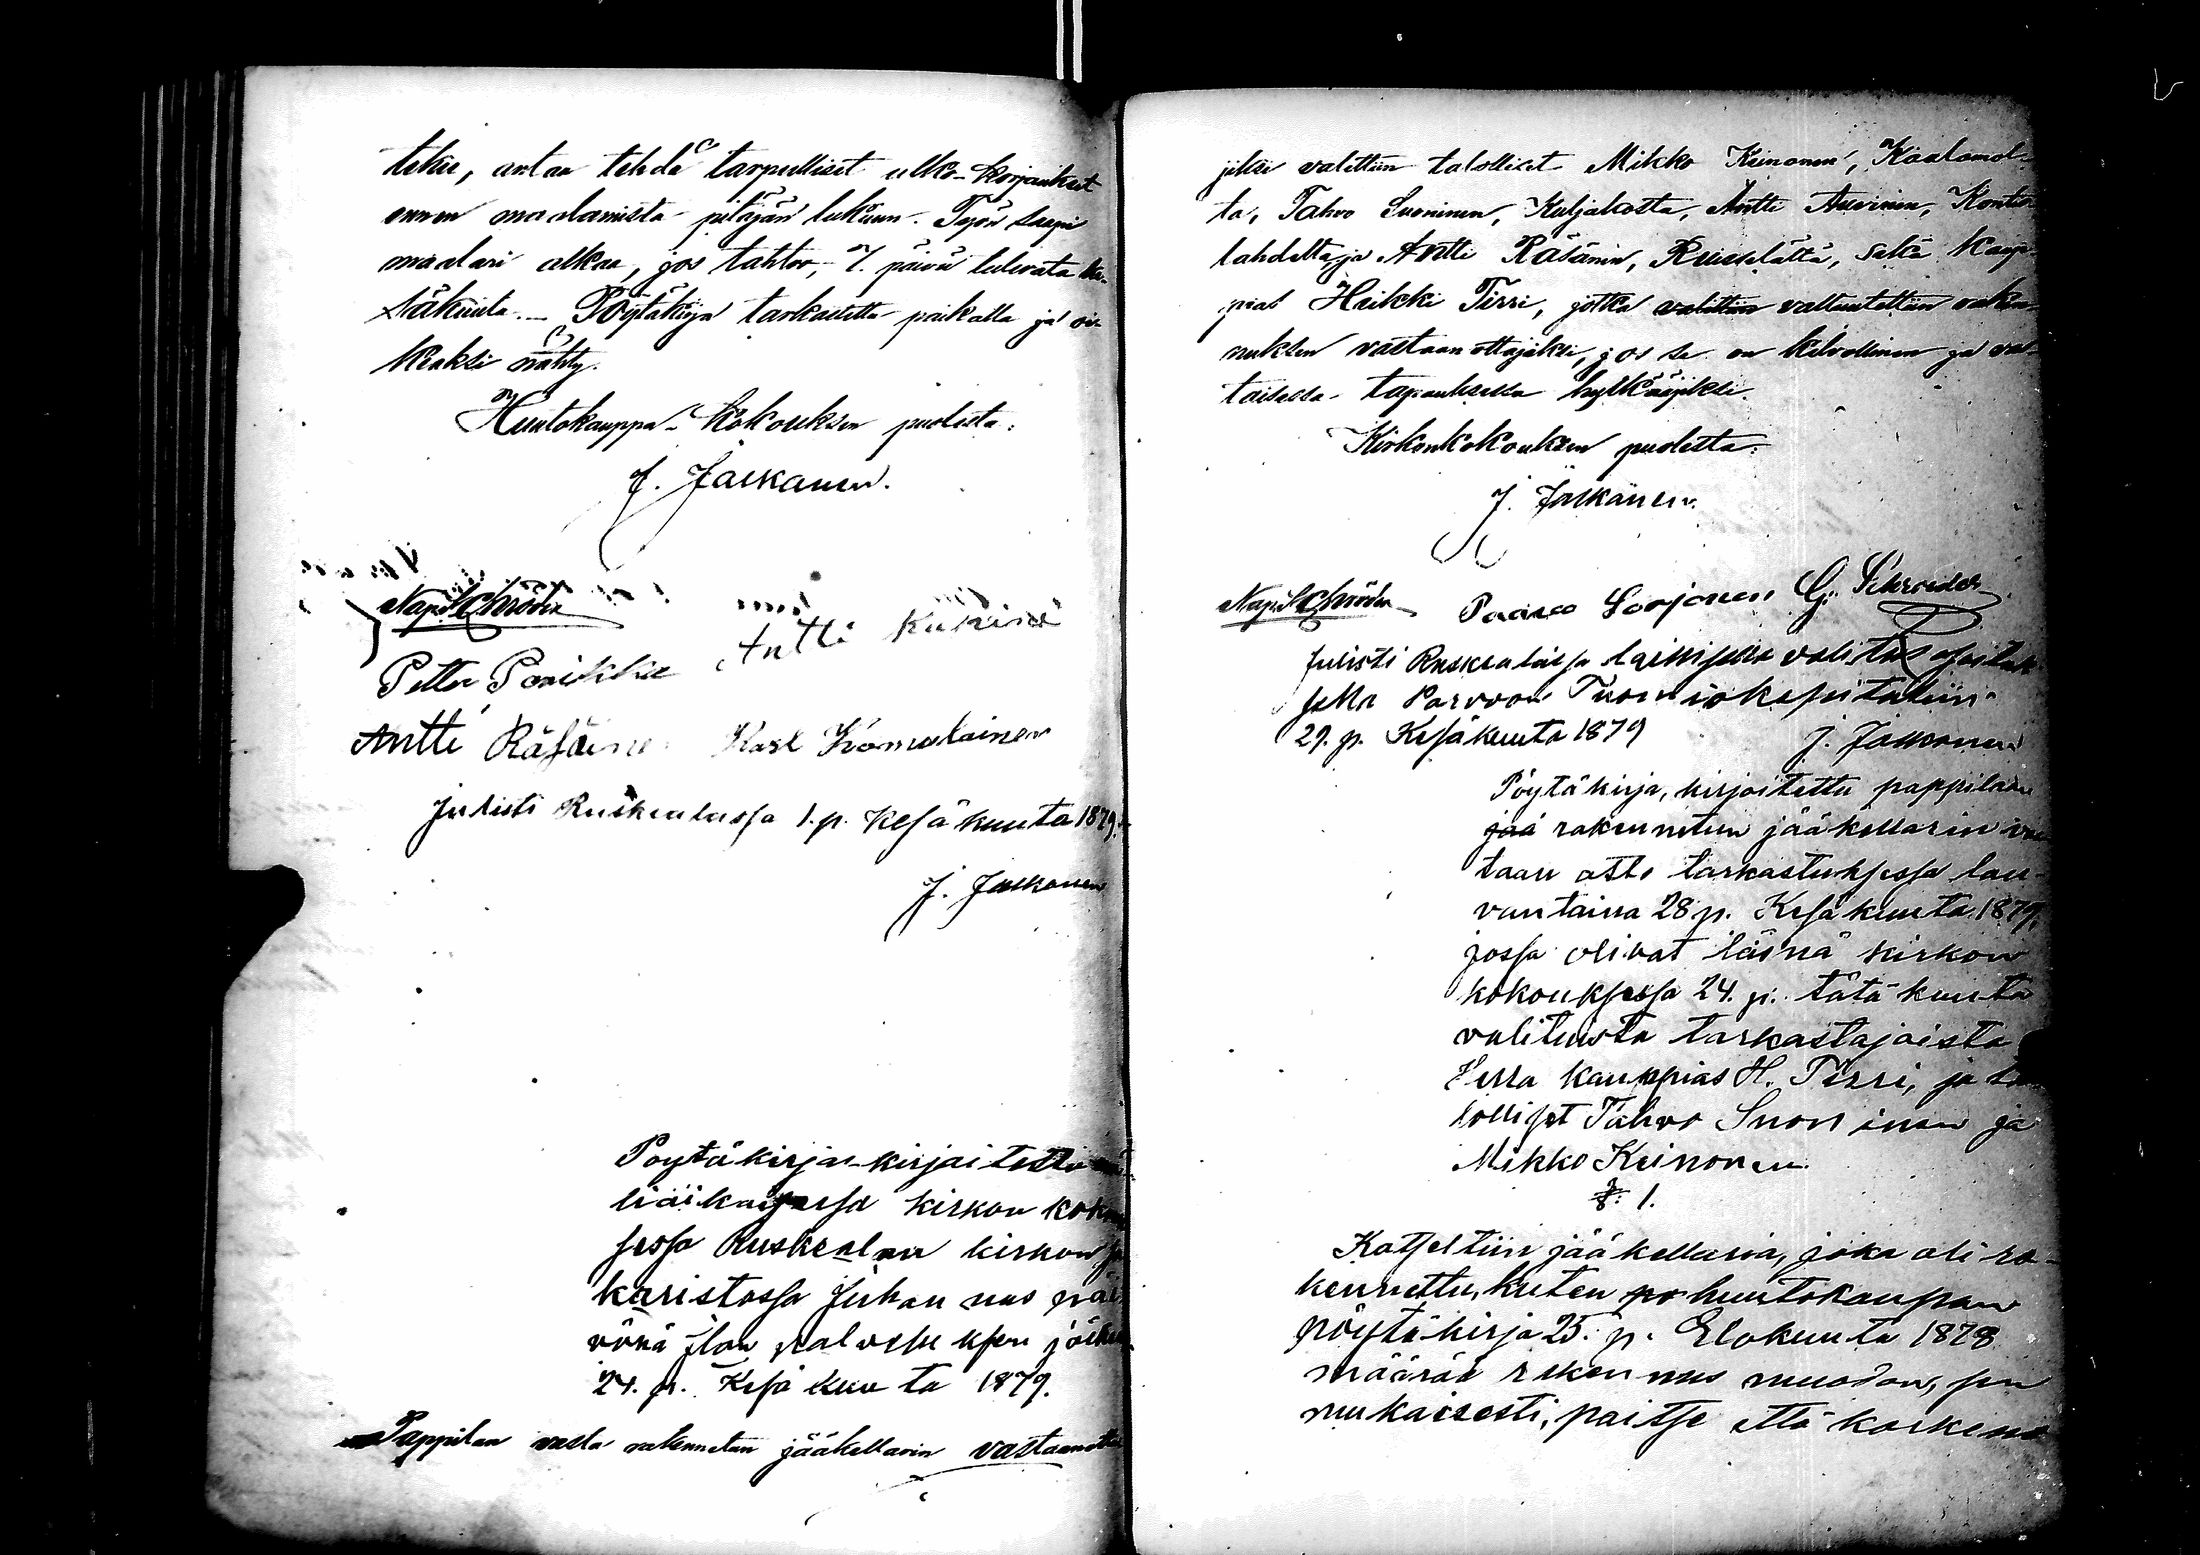 tekee, antaa tehdä tarpeelliset ulko-korjaukset
ennen maalamista pitäjän lukuun. Työn saapi
maalari alkaa, jos tahtoo, 7. päivä tulevata ke-
säkuuta. Pöytäkirja tarkastettu paikalla ja oi-
keaksi nähty.
Huutokauppa-Kokouksen puolesta:
J. Jaskanen.
Nap. Schröder
Antti
Petter Parikka
Antti Räsäine
Karl Komulainen
Julisti Ruskealassa 1. p. Kesäkuuta 1879.
J. Jaskanen
Pöytäkirja kirjoitettu
kirkon kok
sessa Ruskealan kirkon
karistossa Juhannus päi
vänä Jlan palveluksen jälk
24. p. Kesäkuuta 1879.
Pappilan vasta rakennetun jääkellarin vastaanotta
jiksi valittiin talolliset Mikko Keinonen, Kaalamol-
ta, Tahvo Suoninen, Kuljakosta, Antti Auvinen, Kontio
lahdelta, ja Antti Räsänen, Ruisselältä, sekä Kaup-
pias Heikki Tirri, jotka valittiin valtuutettiin raken-
nuksen vastaanottajiksi, jos se on kelvollinen ja vas-
taisessa tapauksessa hylkääjiksi.
Kirkonkokouksen puolesta:
J. Jaskanen.
Nap. Schröder Paavo Sorjonen G. Schroeder
Julisti Ruskealassa valitus
Porvoon Tuomiokapituliin
29. p. Kesäkuuta 1879 J. Jaskanen
Pöytäkirja, kirjoitettu pappilaan
jää rakennetun jääkellarin vas
taan otto tarkastuksessa lau-
vantaina 28 p. Kesäkuuta 1879,
jossa olivat läsnä kirkon
kokouksessa 24. p. tätä kuuta
valituista tarkastajoista
Herra kauppias H. Tirri, ja ta
lolliset Tahvo Suoninen ja
Mikko Keinonen.
§. 1.
Katseltiin jääkellaria, joka oli ra-
kennettu, kuten po huutokaupan
pöytäkirja 25. p. Elokuuta 1878
määrää rakennus muodon, sen
mukaisesti, paitse että korkeus